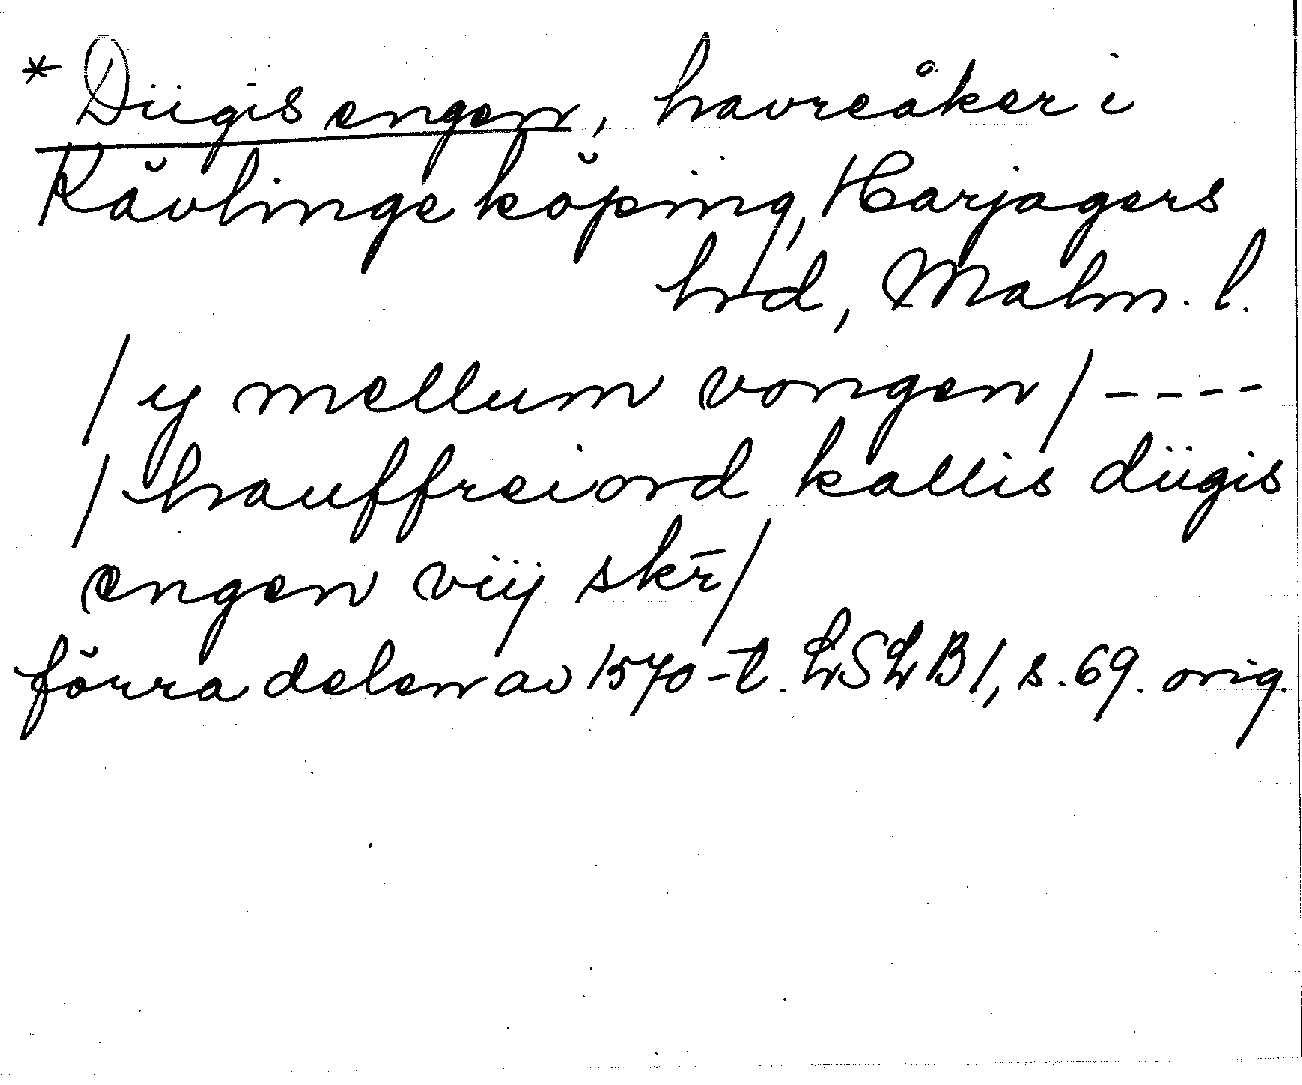 * Diigis engen, havreåker i
Kävlinge köping, Harjagers
hrd, Malm. l.
/ y mellum vongen / ----
/ hauffreiord kallis diigis
engen viij skr̄ /
förra delen av 1570-t. LSLB 1, s. 69. orig.